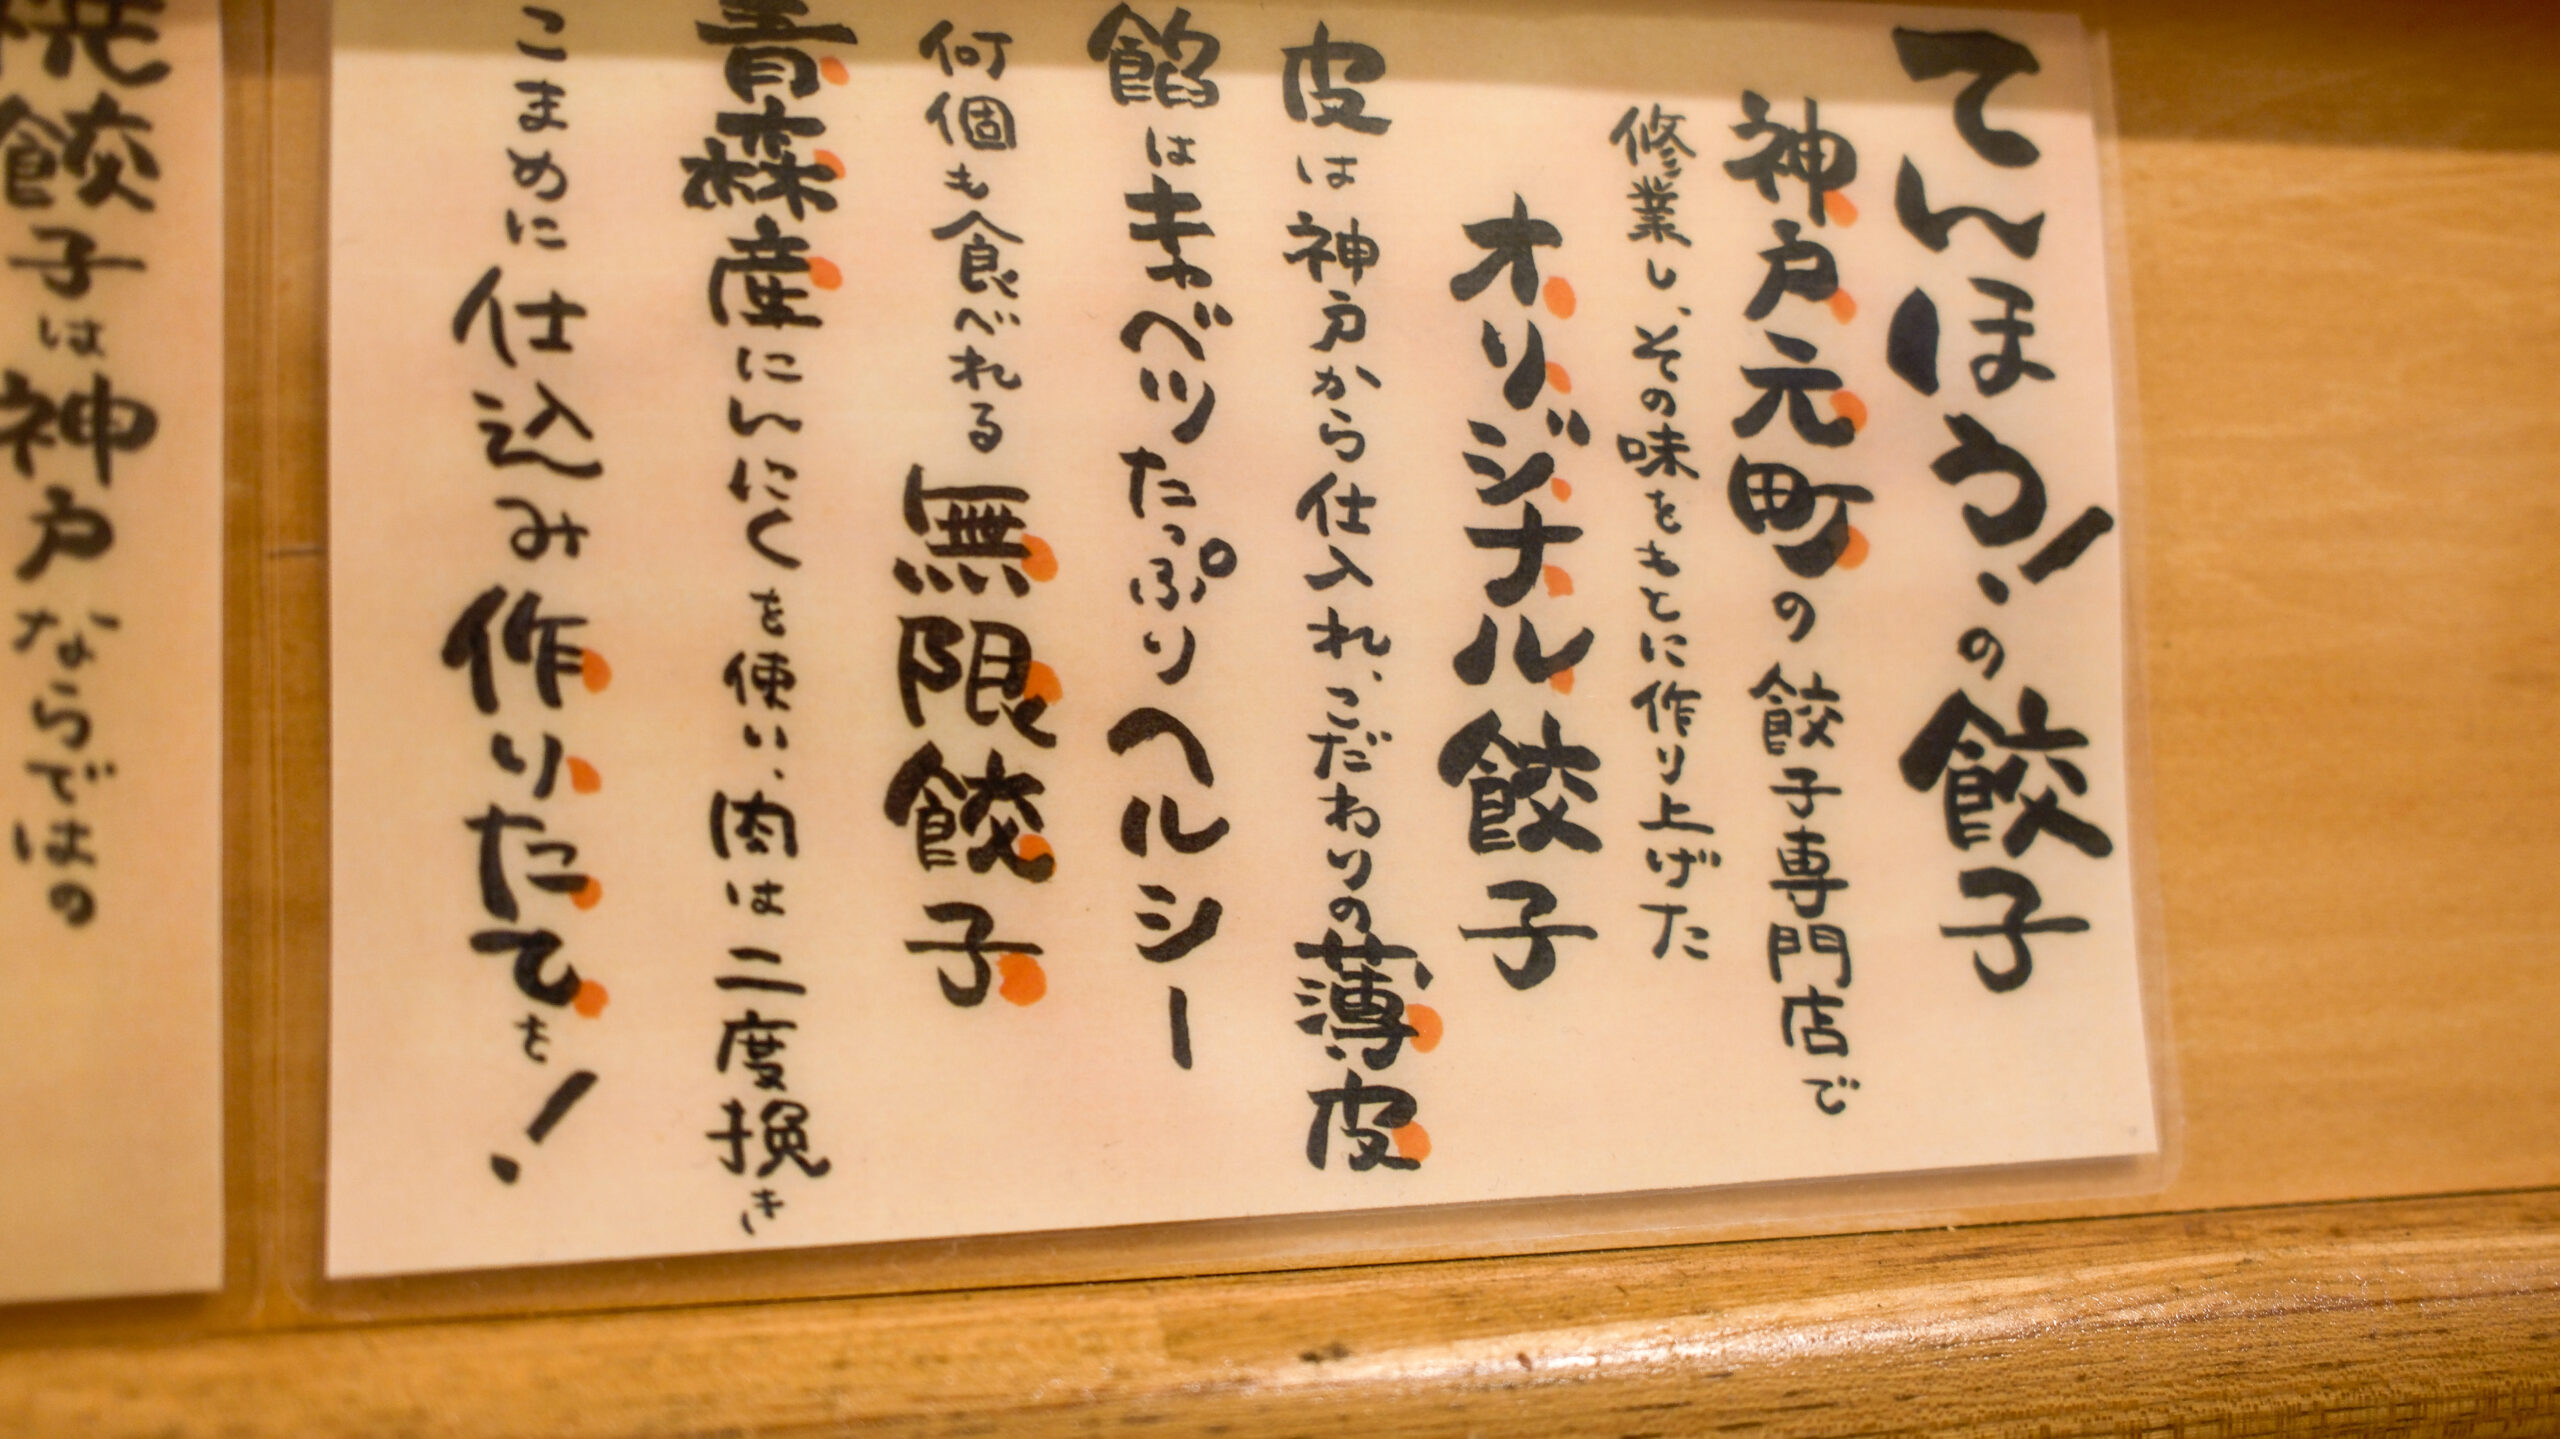 てんほう!の餃子
神戸元町の餃子専門店で
修業し、その味をもとに作り上げた
オリジナル餃子
皮は神戸から仕入れ、こだわりの薄皮
餡はキャベツたっぷりヘルシー
何個も食べれる無限餃子
青森産にんにくを使い、肉は二度挽き
こまめに仕込み作りたてを!
焼餃子は神戸ならではの